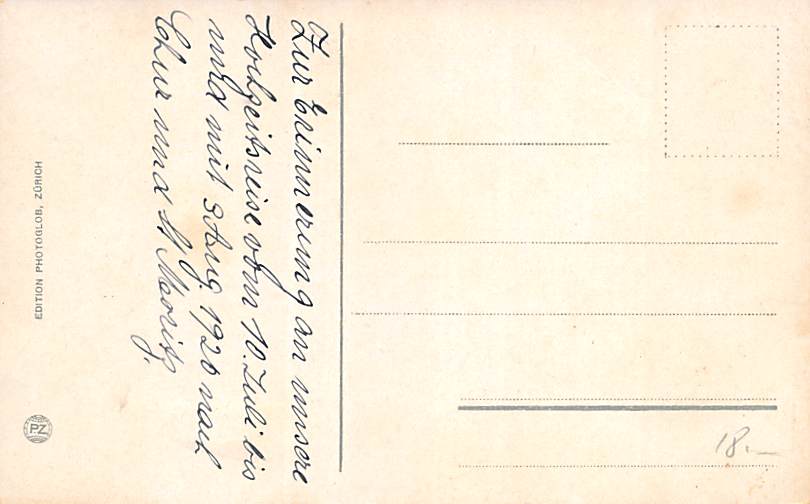 Zur Erinnerung an unsere
Hochzeitsreise vom 10. Juli bis
und mit 3 Aug. 1920 nach
Chur und St Moritz.
EDITION PHOTOGLOB, ZÜRICH
PZ
18.—